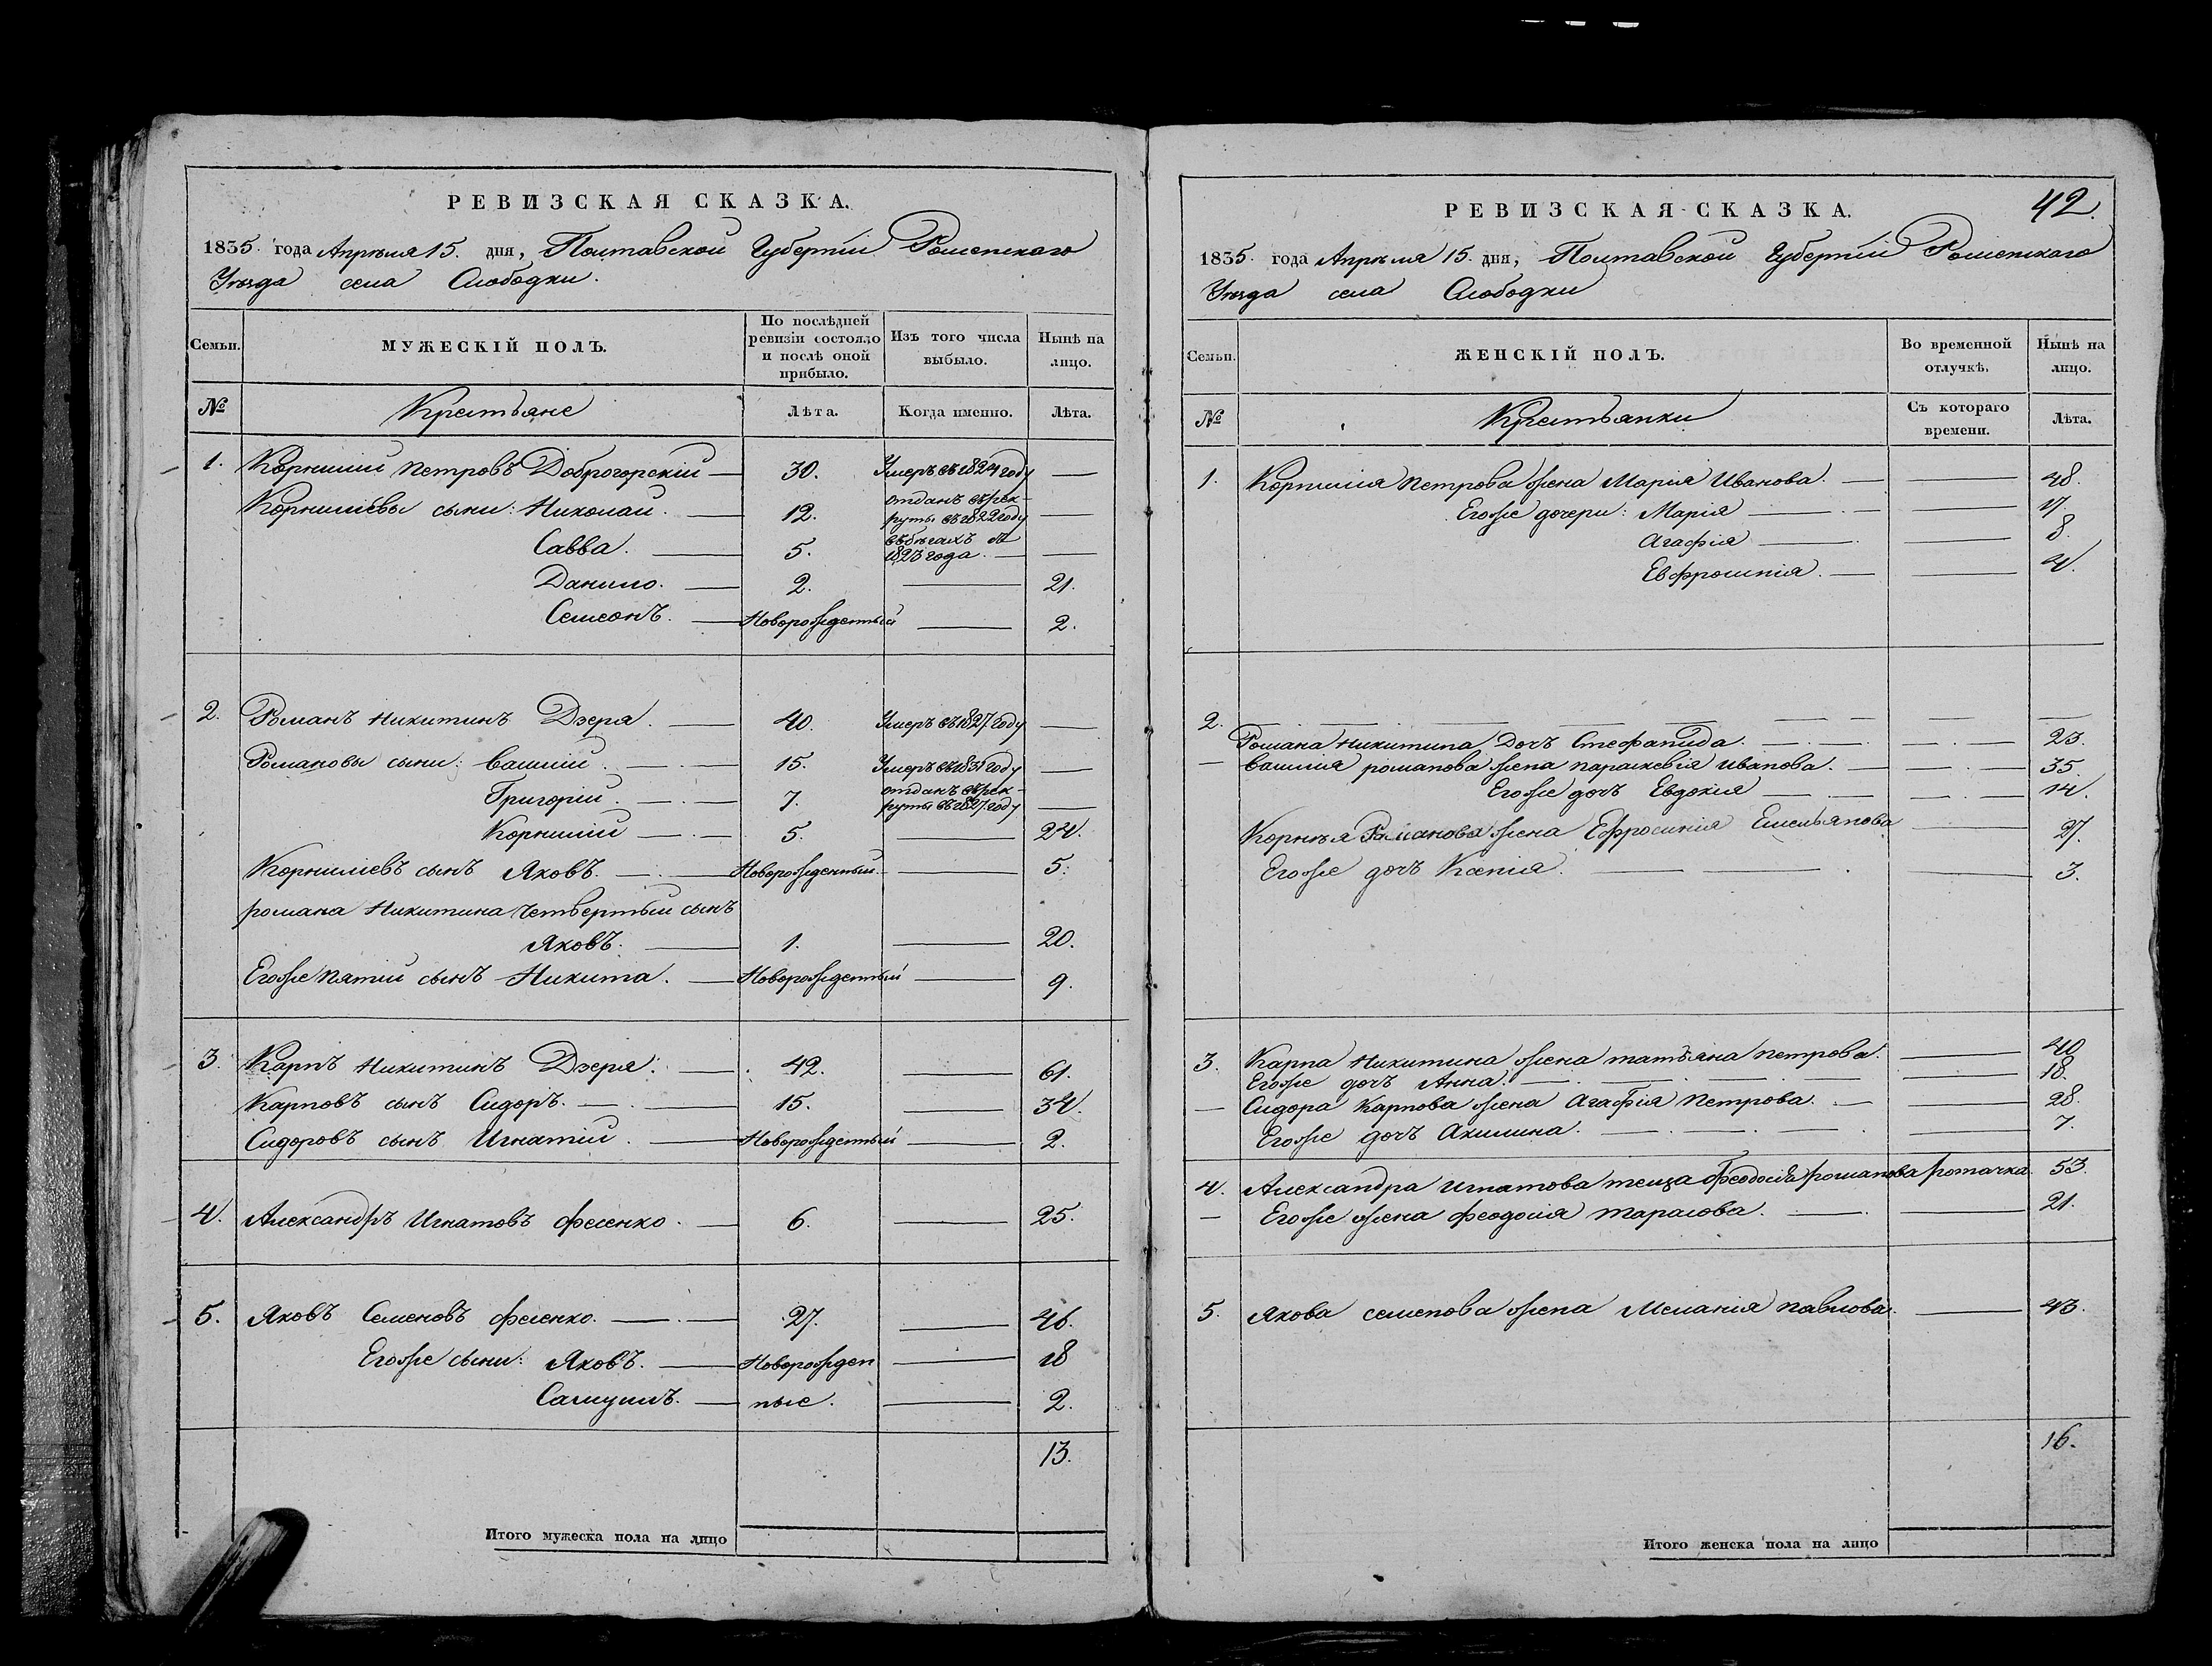 РЕВИЗСКАЯ СКАЗКА.
1835 года Апреля 15. дня, Полтавской Губерніи Роменскаго
Уезда села Слободки.
Семьи.
МУЖЕСКІЙ ПОЛЪ.
По послѣдней ревизіи состояло и послѣ оной прибыло.
Изъ того числа выбыло.
Нынѣ на лицо.
№ Крестьяне Лѣта. Когда именно. Лѣта.
1. Корнилій Петровъ Доброгорскій — 30. Умеръ въ 1824 году —
Корниліевы сыны: Николай. — 12. отданъ въ рек-руты въ 1822 году —
Савва. — 5. въ бегахъ съ 1823 года. —
Данило. — 2. — 21.
Семенъ. — Новорожденный — 2.
2. Романъ Никитинъ Дзеря. — 40. Умеръ въ 1827 году —
Романовы сыны: Василій. — 15. Умеръ въ 1831 году —
Григорій. — 7. отданъ въ рек-руты въ 1827 году —
Корнилій — 5. — 24.
Корниліевъ сынъ Яковъ. — Новорожденный — 5.
романа Никитина Четвертый сынъ
Яковъ. — 1. — 20.
Егоже Пятій сынъ Никита. — Новорожденный — 9.
3. Карпъ Никитинъ Дзеря. — 42. — 61.
Карповъ сынъ Сидоръ. — 15. — 34.
Сидоровъ сынъ Игнатій. — Новорожденный — 2.
4. Александръ Игнатовъ Фесенко. — 6. — 25.
5. Яковъ Семеновъ Фесенко. — 27. — 46.
Егоже сыны: Яковъ. — Новорожден — 18
Самуилъ. — ные. — 2.
13.
Итого мужеска пола на лицо
42.
РЕВИЗСКАЯ СКАЗКА.
1835 года Апреля 15. дня, Полтавской Губерніи Роменскаго
Уезда села Слободки
Семьи.
ЖЕНСКІЙ ПОЛЪ.
Во временной отлучкѣ.
Нынѣ на лицо.
№ Крестьянки Съ котораго времени. Лѣта.
1. Корнилія Петрова жена Марія Иванова. — 48.
Егоже дочери: Марія — 17.
Агафія — 8.
Евфросинія. — 4.
2.
Романа Никитина Дочь Стефанида. — 23.
Василия романова жена параскевія иванова. — 35.
Егоже дочь Евдокия — 14.
Корнѣя Романова жена Ефросинія Емельянова — 27.
Егоже дочь Ксенія. — 3.
3. Карпа Никитина жена татьяна петрова. — 40.
Егоже дочь Анна. — 18.
Сидора Карпова жена Агафія Петрова. — 28.
Егоже дочь Акилина. — 7.
4. Александра Игнатова теща Феодосія романова 53.
Егоже жена феодосия тарасова. — 21.
5. Якова семенова жена Меланія павлова. — 43.
16.
Итого женска пола на лицо